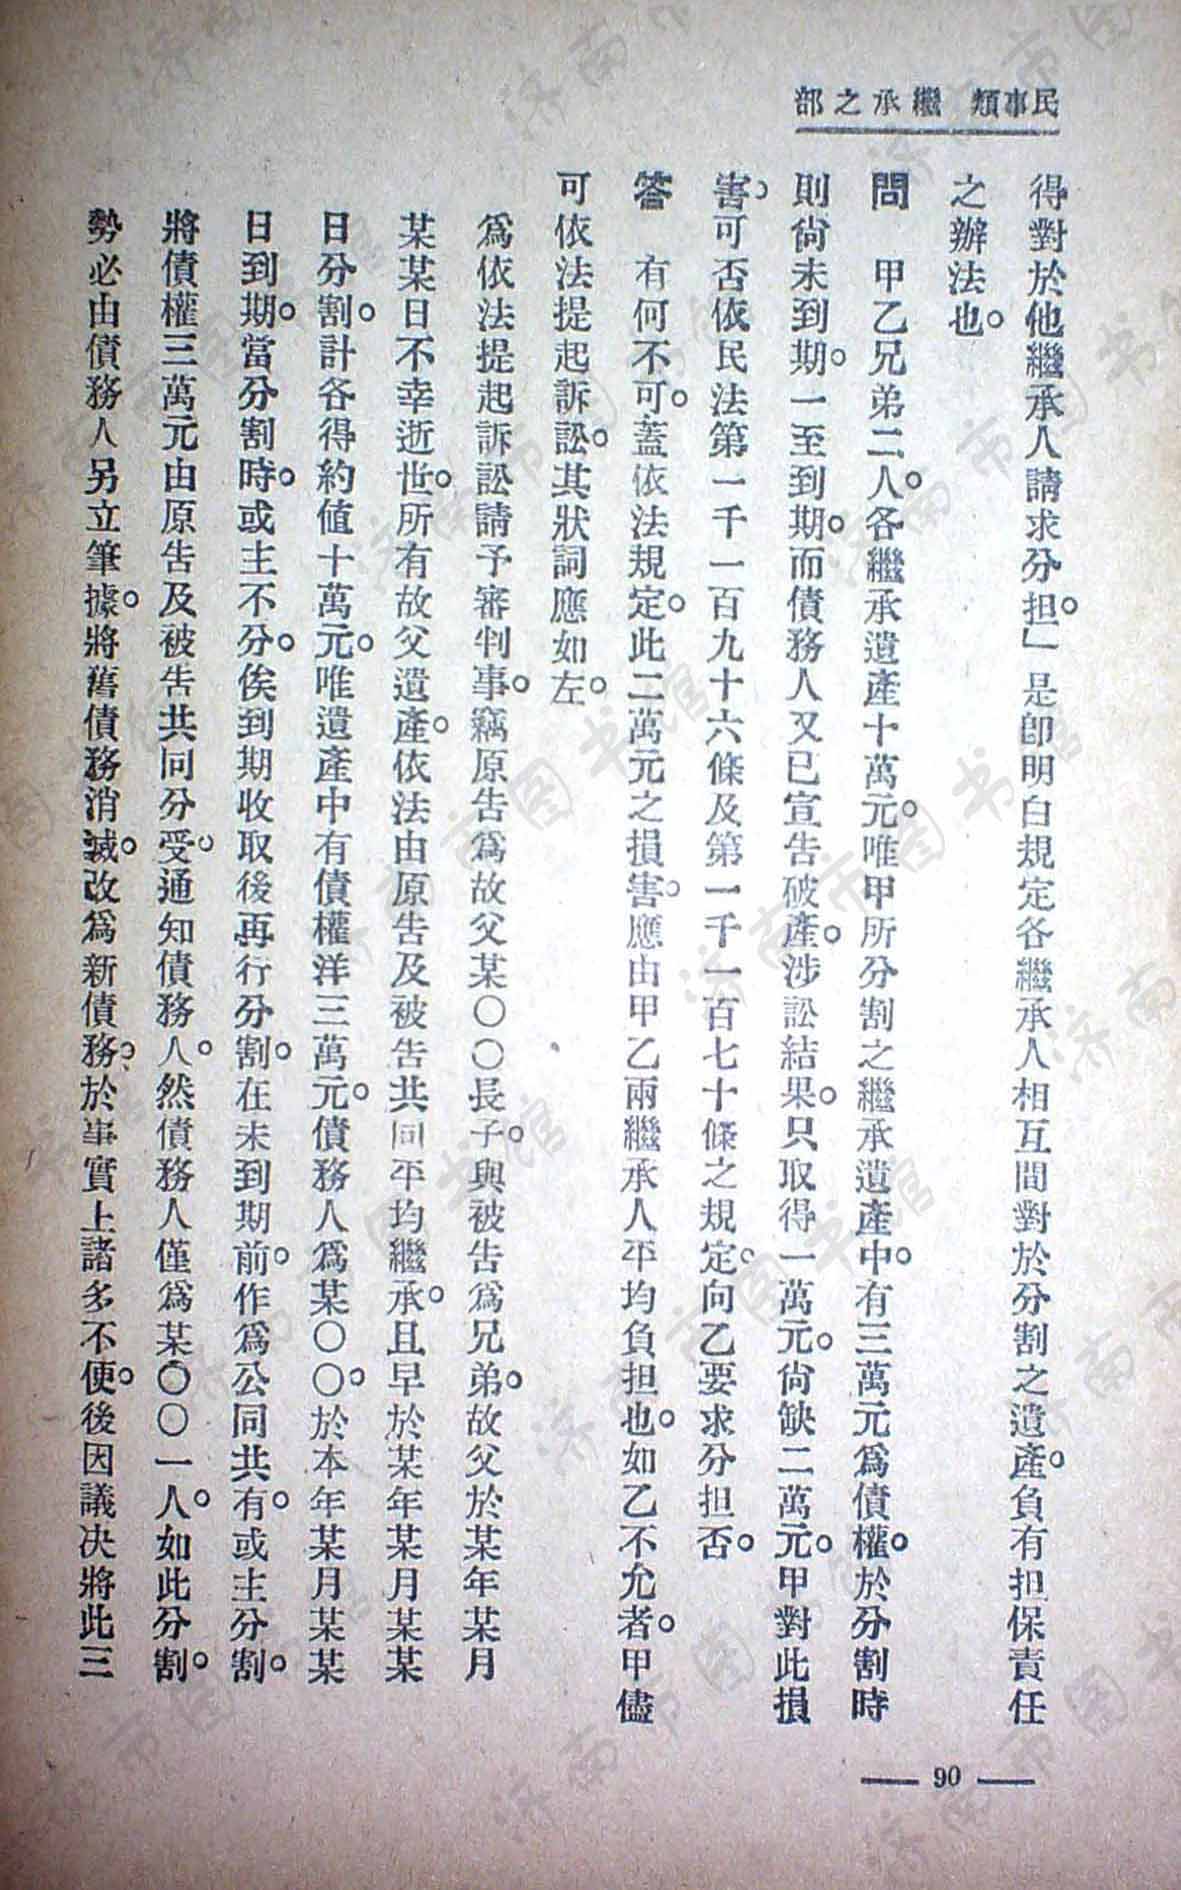 民事類 繼承之部
得對於他繼承人請求分担。」是卽明白規定各繼承人相互間對於分割之遺產。負有担保責任
之辦法也。
問 甲乙兄弟二人。各繼承遺產十萬元。唯甲所分割之繼承遺產中。有三萬元爲債權。於分割時
則尙未到期。一至到期。而債務人又已宣告破產。涉訟結果。只取得一萬元。尙缺二萬元。甲對此損
害。可否依民法第一千一百九十六條及第一千一百七十條之規定。向乙要求分担否。
答 有何不可。蓋依法規定。此二萬元之損害。應由甲乙兩繼承人平均負担也。如乙不允者。甲儘
可依法提起訴訟。其狀詞應如左。
爲依法提起訴訟請予審判事。竊原告爲故父某〇〇長子。與被告爲兄弟。故父於某年某月
某某日不幸逝世。所有故父遺產。依法由原告及被告共同平均繼承。且早於某年某月某某
日分割。計各得約値十萬元。唯遺產中有債權洋三萬元。債務人爲某〇〇。於本年某月某某
日到期。當分割時。或主不分。俟到期收取後再行分割。在未到期前。作爲公同共有。或主分割。
將債權三萬元由原告及被告共同分受。通知債務人。然債務人僅爲某〇〇一人。如此分割。
勢必由債務人另立筆據。將舊債務消滅。改爲新債務。於事實上諸多不便。後因議決將此三
— 90 —
济南市图书馆